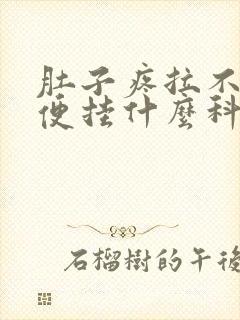 肚子疼拉不
便挂什麼科
石榴樹的午後